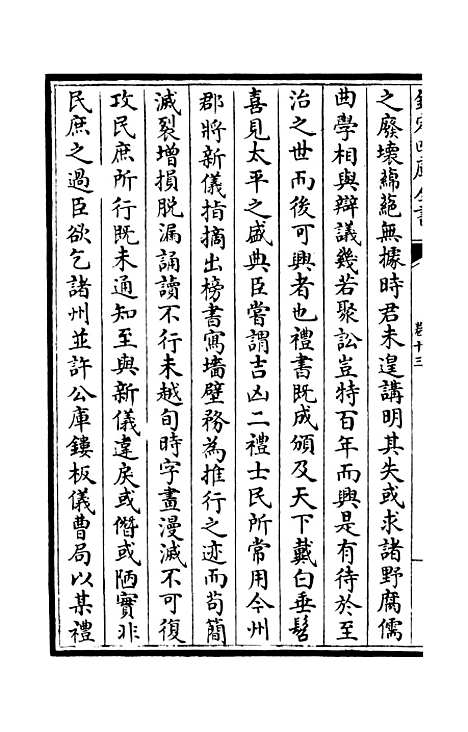 欽定四庫全書
卷十三
之廢壞綿蕝無據時君未遑講明其失或求諸野腐儒
曲學相與辯議幾若聚訟豈特百年而興是有待於至
治之世而後可興者也禮書既成頒及天下戴白垂髫
喜見太平之盛典臣嘗謂吉凶二禮士民所常用今州
郡將新儀指摘出榜書寫墻壁務為推行之迹而苟簡
滅裂增損脱漏誦讀不行未越旬時字畫漫滅不可復
攻民庶所行既未通知至與新儀違戾或僭或陋實非
民庶之過臣欲乞諸州並許公庫鏤板儀曹局以某禮